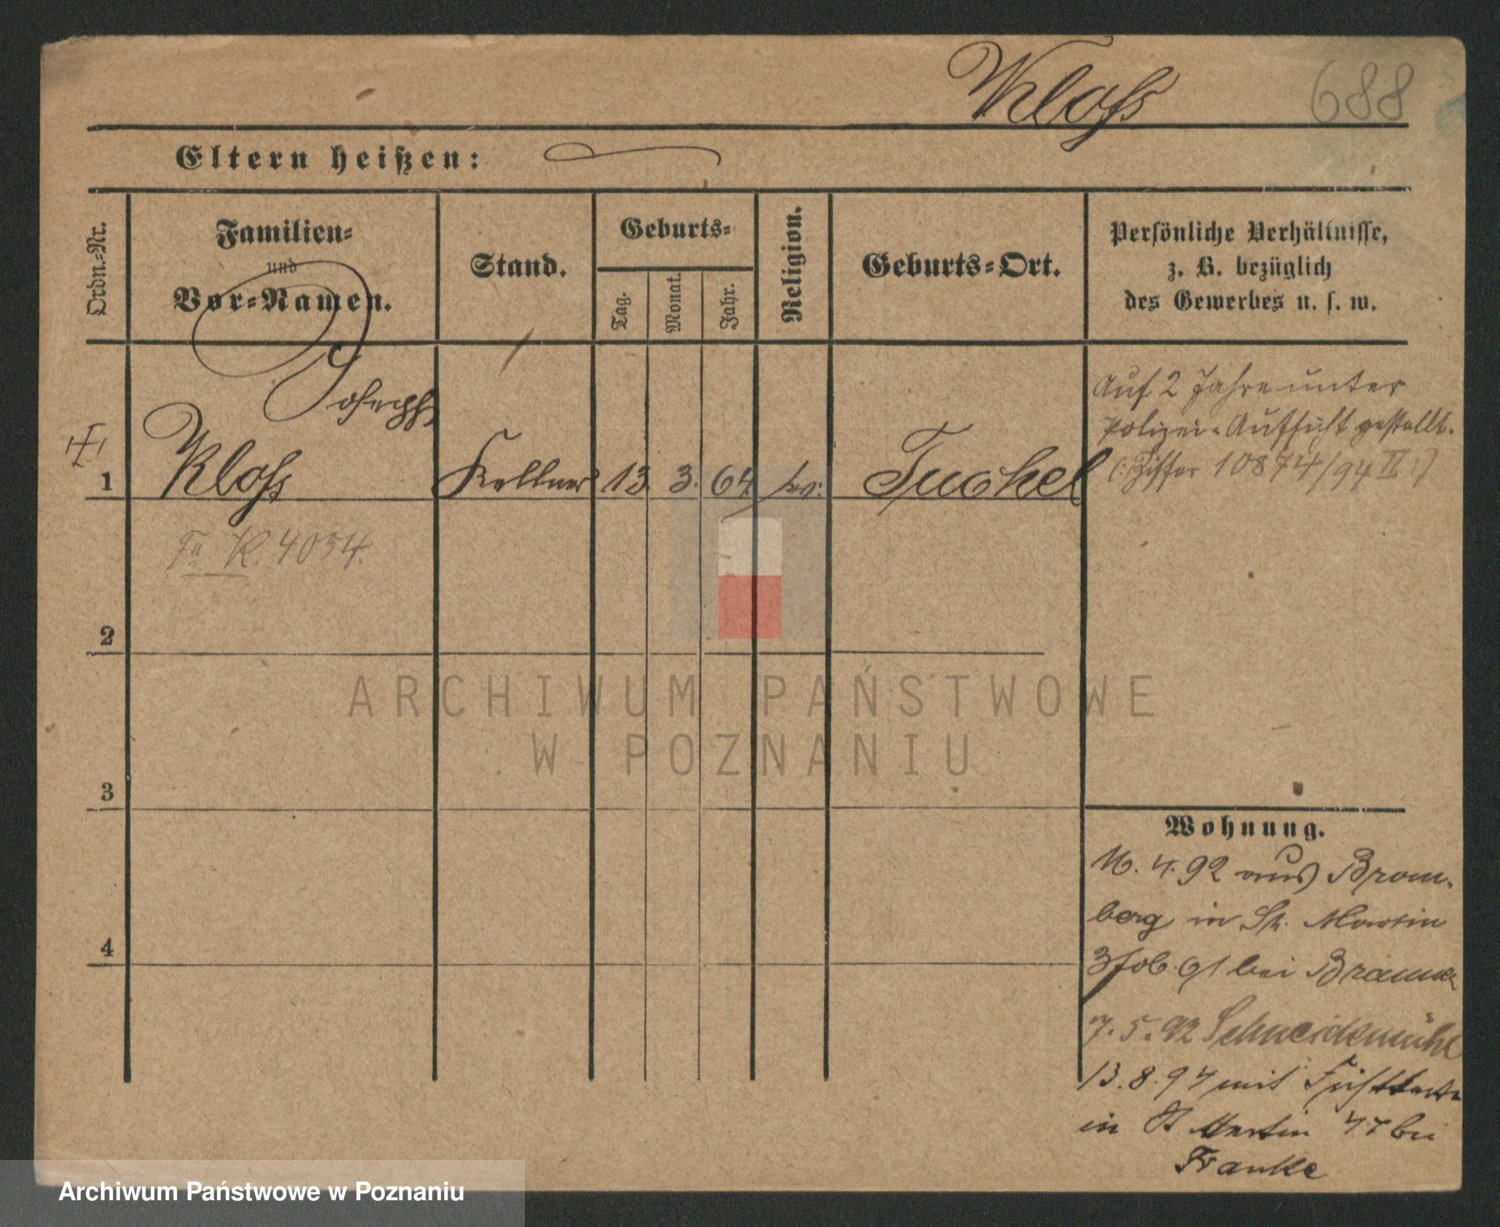 Kloss 688
Eltern heißen:
Ordn.-Nr.
Familien-
und
Vor-Namen.
Stand.
Geburts-
Tag.
Monat.
Jahr.
Religion.
Geburts-Ort.
Persönliche Verhältnisse,
z. B. bezüglich
des Gewerbes u. s. w.
Joseph
1 Kloss Kellner 13 3. 64 Tuchel
Auf 2 Jahre unter
Polizei-Aufsicht gestellt.
(: Ziffer 10874/94 II :)
K. 4034.
2
3
4
ARCHIWUM PAŃSTWOWE
W POZNANIU
Wohnung.
16. 4. 92 aus Brom-
berg in St. Martin
bei
7. 5. 92 Schneidemühl
13. 8. 94 mit
in St Martin 47 bei
Franke
Archiwum Państwowe w Poznaniu